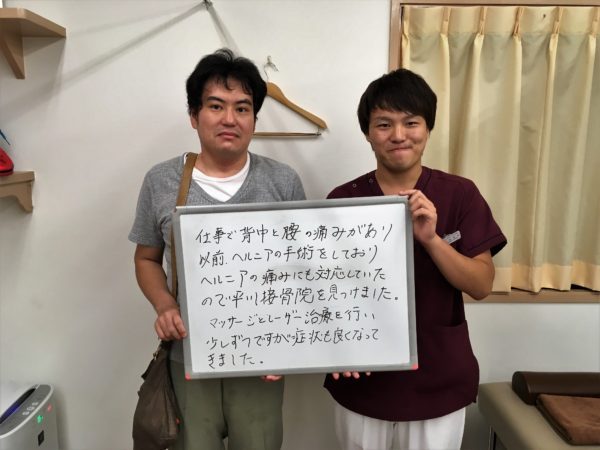 仕事で背中と腰の痛みがあり
以前、ヘルニアの手術をしており
ヘルニアの痛みにも対応していた
ので平川接骨院を見つけました。
マッサージとレーザー治療を行い
少しずつですが症状も良くなって
きました。